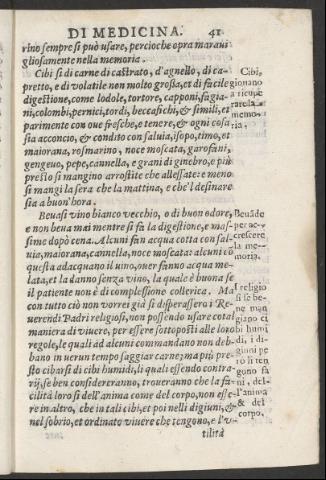 DI MEDICINA. 41
rino sempre si può usare, percioche opra maraui
gliosamente nella memoria.
Cibi si di carne di castrato, d'agnello, di ca-
pretto, e di volatile non molto grossa, et di facile
digestione, come lodole, tortore, capponi, fagia-
ni, colombi, pernici, tordi, beccafichi, & simili, et
parimente con oue fresche, e tenere, & ogni cosa
sia acconcio, & condito con saluia, isopo, timo, et
maiorana, rosmarino, noce moscata, garofani,
gengeuo, pepe, cannella, e grani di ginebro, e più
presto si mangino arrostite che allessate: e meno
si mangi la sera che la mattina, e che'l desinare
sia a buon'hora.
Beuasi vino bianco vecchio, o di buon odore,
e non beua mai mentre si fa la digestione, e mas-
sime dopò cena. Alcuni fan acqua cotta con sal-
uia, maiorana, cannella, noce moscata: alcuni cō
questa adacquano il uino, ouer fanno acqua me-
lata, et la danno senza vino, la quale è buona se
il patiente non è di complessione collerica. Ma
con tutto ciò non vorrei già si disperassero i Re-
uerendi Padri religiosi, non possendo usare cotal
maniera di viuere, per essere sottoposti alle loro
regole, le quali ad alcuni commandano non deb-
bano in uerun tempo saggiar carne; ma più pre-
sto cibarsi di cibi humidi, li quali essendo contra-
rij, se ben considereranno, troueranno che la fa-
cilità loro si dell'anima come del corpo, non esse-
re in altro, che in tali cibi, et poi nelli digiuni, &
nel sobrio, et ordinato viuere che tengono, e l'v-
tilità
Cibi,
gionano
a ricupe
memo-
ria.
Beuāde
per ac-
crescere
la me-
moria.
I religio
si se be-
ne man
giano ci
bi humi
di, i di-
giuni pe
rò li ten
gono sa
ni, del-
l'anima
& del
corpo.